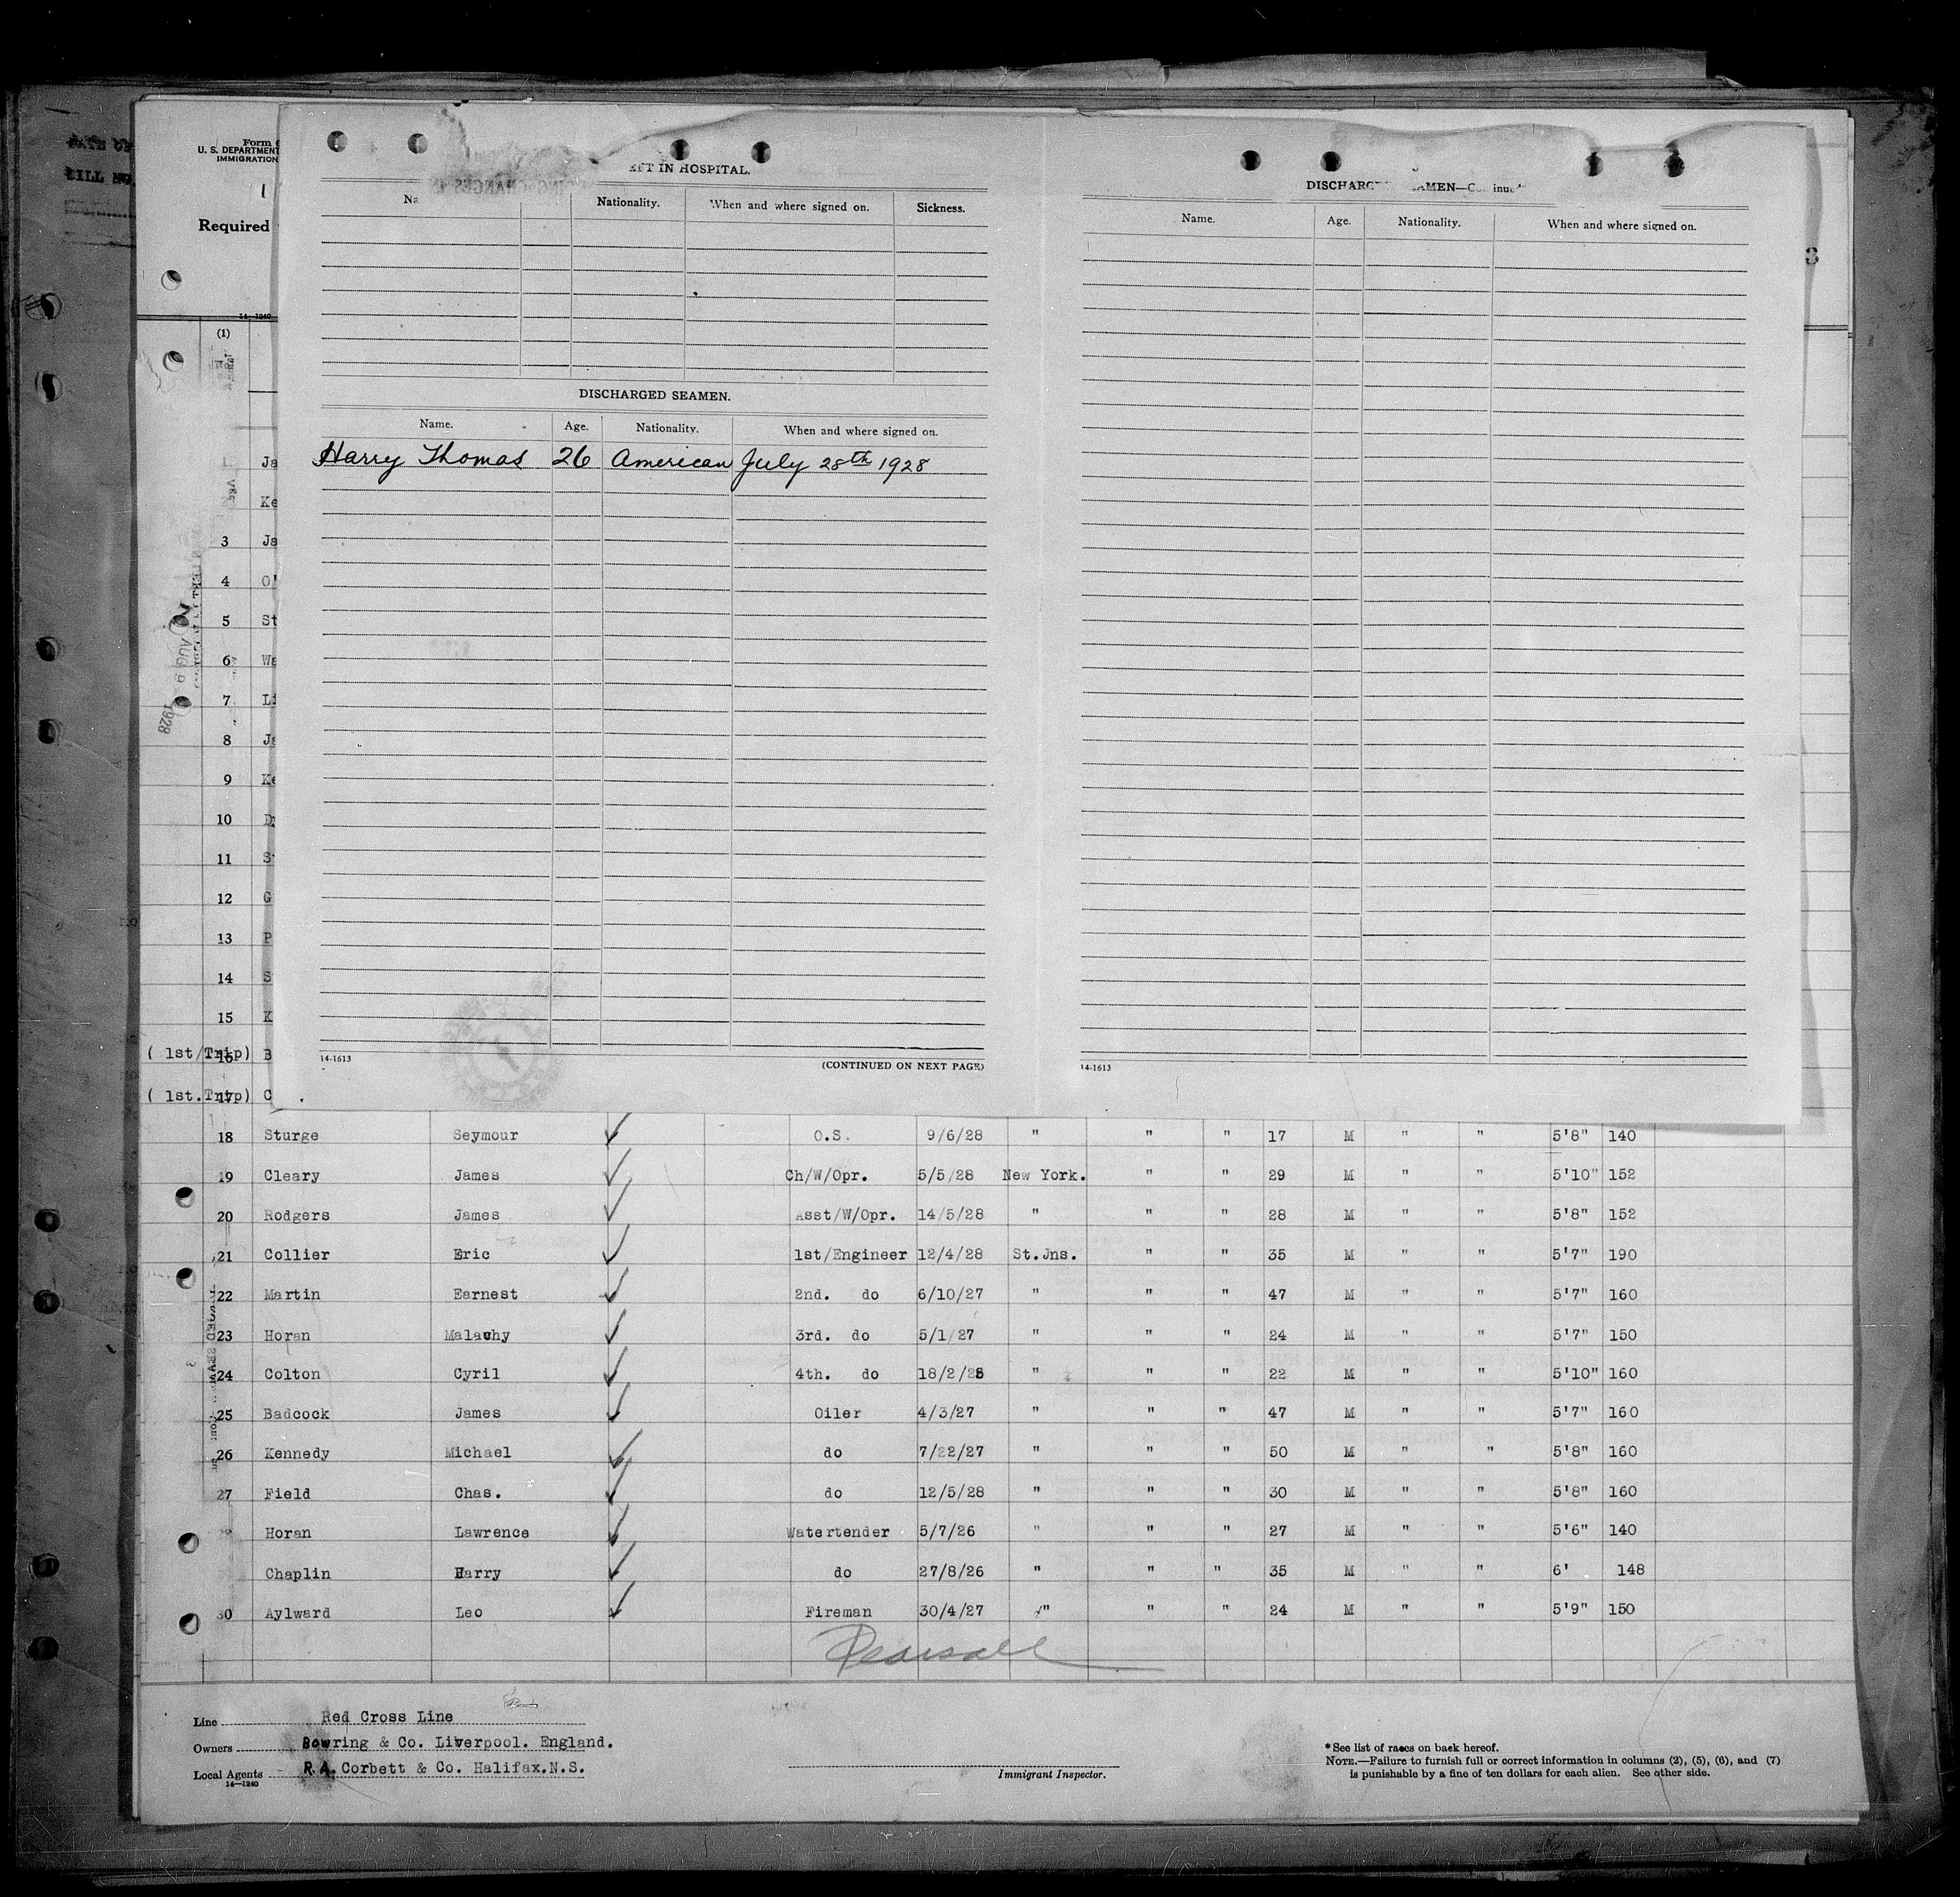 Form
U. S. DEPARTMENT
IMMIGRATION
Required
14-1240
(1)
IN HOSPITAL.
Nationality. When and where signed on. Sickness.
DISCHARGED SEAMEN.
Name. Age. Nationality. When and where signed on.
Harry Thomas 26 American July 28th 1928
14-1613 (CONTINUED ON NEXT PAGE)
Name. Age. Nationality. When and where signed on.
14-1613
AUG 9 1928
Ja
Ke
3 Ja
4 O'
5 St
6 Wa
7 Li
8 Ja
9 Ke
10
11 S
12 G
13 P
14 S
15 K
( 1st/Trip) 16 B
( 1st.Trip) 17 C
18 Sturge Seymour O.S. 9/6/28 " " " 17 M " " 5'8" 140
19 Cleary James Ch/W/Opr. 5/5/28 New York. " " 29 M " " 5'10" 152
20 Rodgers James Asst/W/Opr. 14/5/28 " " " 28 M " " 5'8" 152
21 Collier Eric 1st/Engineer 12/4/28 St.Jns. " " 35 M " " 5'7" 190
22 Martin Earnest 2nd. do 6/10/27 " " " 47 M " " 5'7" 160
23 Horan Malachy 3rd. do 5/1/27 " " " 24 M " " 5'7" 150
24 Colton Cyril 4th. do 18/2/28 " " " 22 M " " 5'10" 160
25 Badcock James Oiler 4/3/27 " " " 47 M " " 5'7" 160
26 Kennedy Michael do 7/22/27 " " " 50 M " " 5'8" 160
27 Field Chas. do 12/5/28 " " " 30 M " " 5'8" 160
Horan Lawrence Watertender 5/7/26 " " " 27 M " " 5'6" 140
Chaplin Harry do 27/8/26 " " " 35 M " " 6' 148
30 Aylward Leo Fireman 30/4/27 " " " 24 M " " 5'9" 150
Pearsall
Line Red Cross Line
Owners Bowring & Co. Liverpool. England.
Local Agents R.A. Corbett & Co. Halifax.N.S.
14-1240
Immigrant Inspector.
*See list of races on back hereof.
NOTE.—Failure to furnish full or correct information in columns (2), (5), (6), and (7)
is punishable by a fine of ten dollars for each alien. See other side.